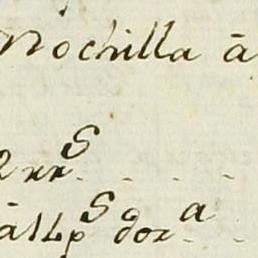 Mochilla â
2 rr^S
â 1 Lp^S doz^a